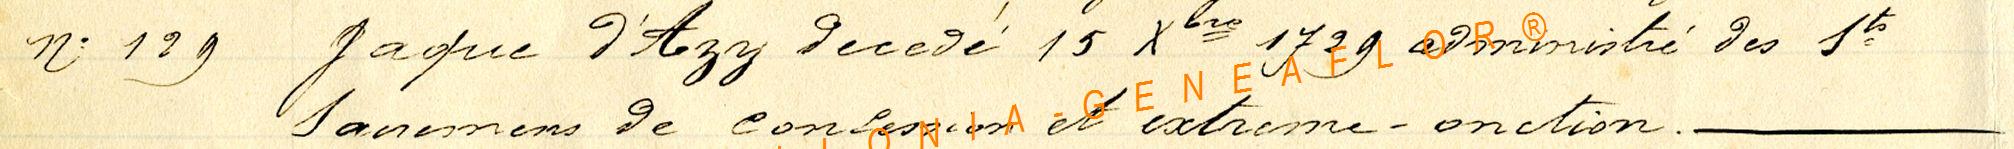 N: 129 Jaque d'Azy decedé 15 Xbre 1729 administré des Sts
Sacremens de confession et extreme-onction.
LONIA-GENEAFLOR®